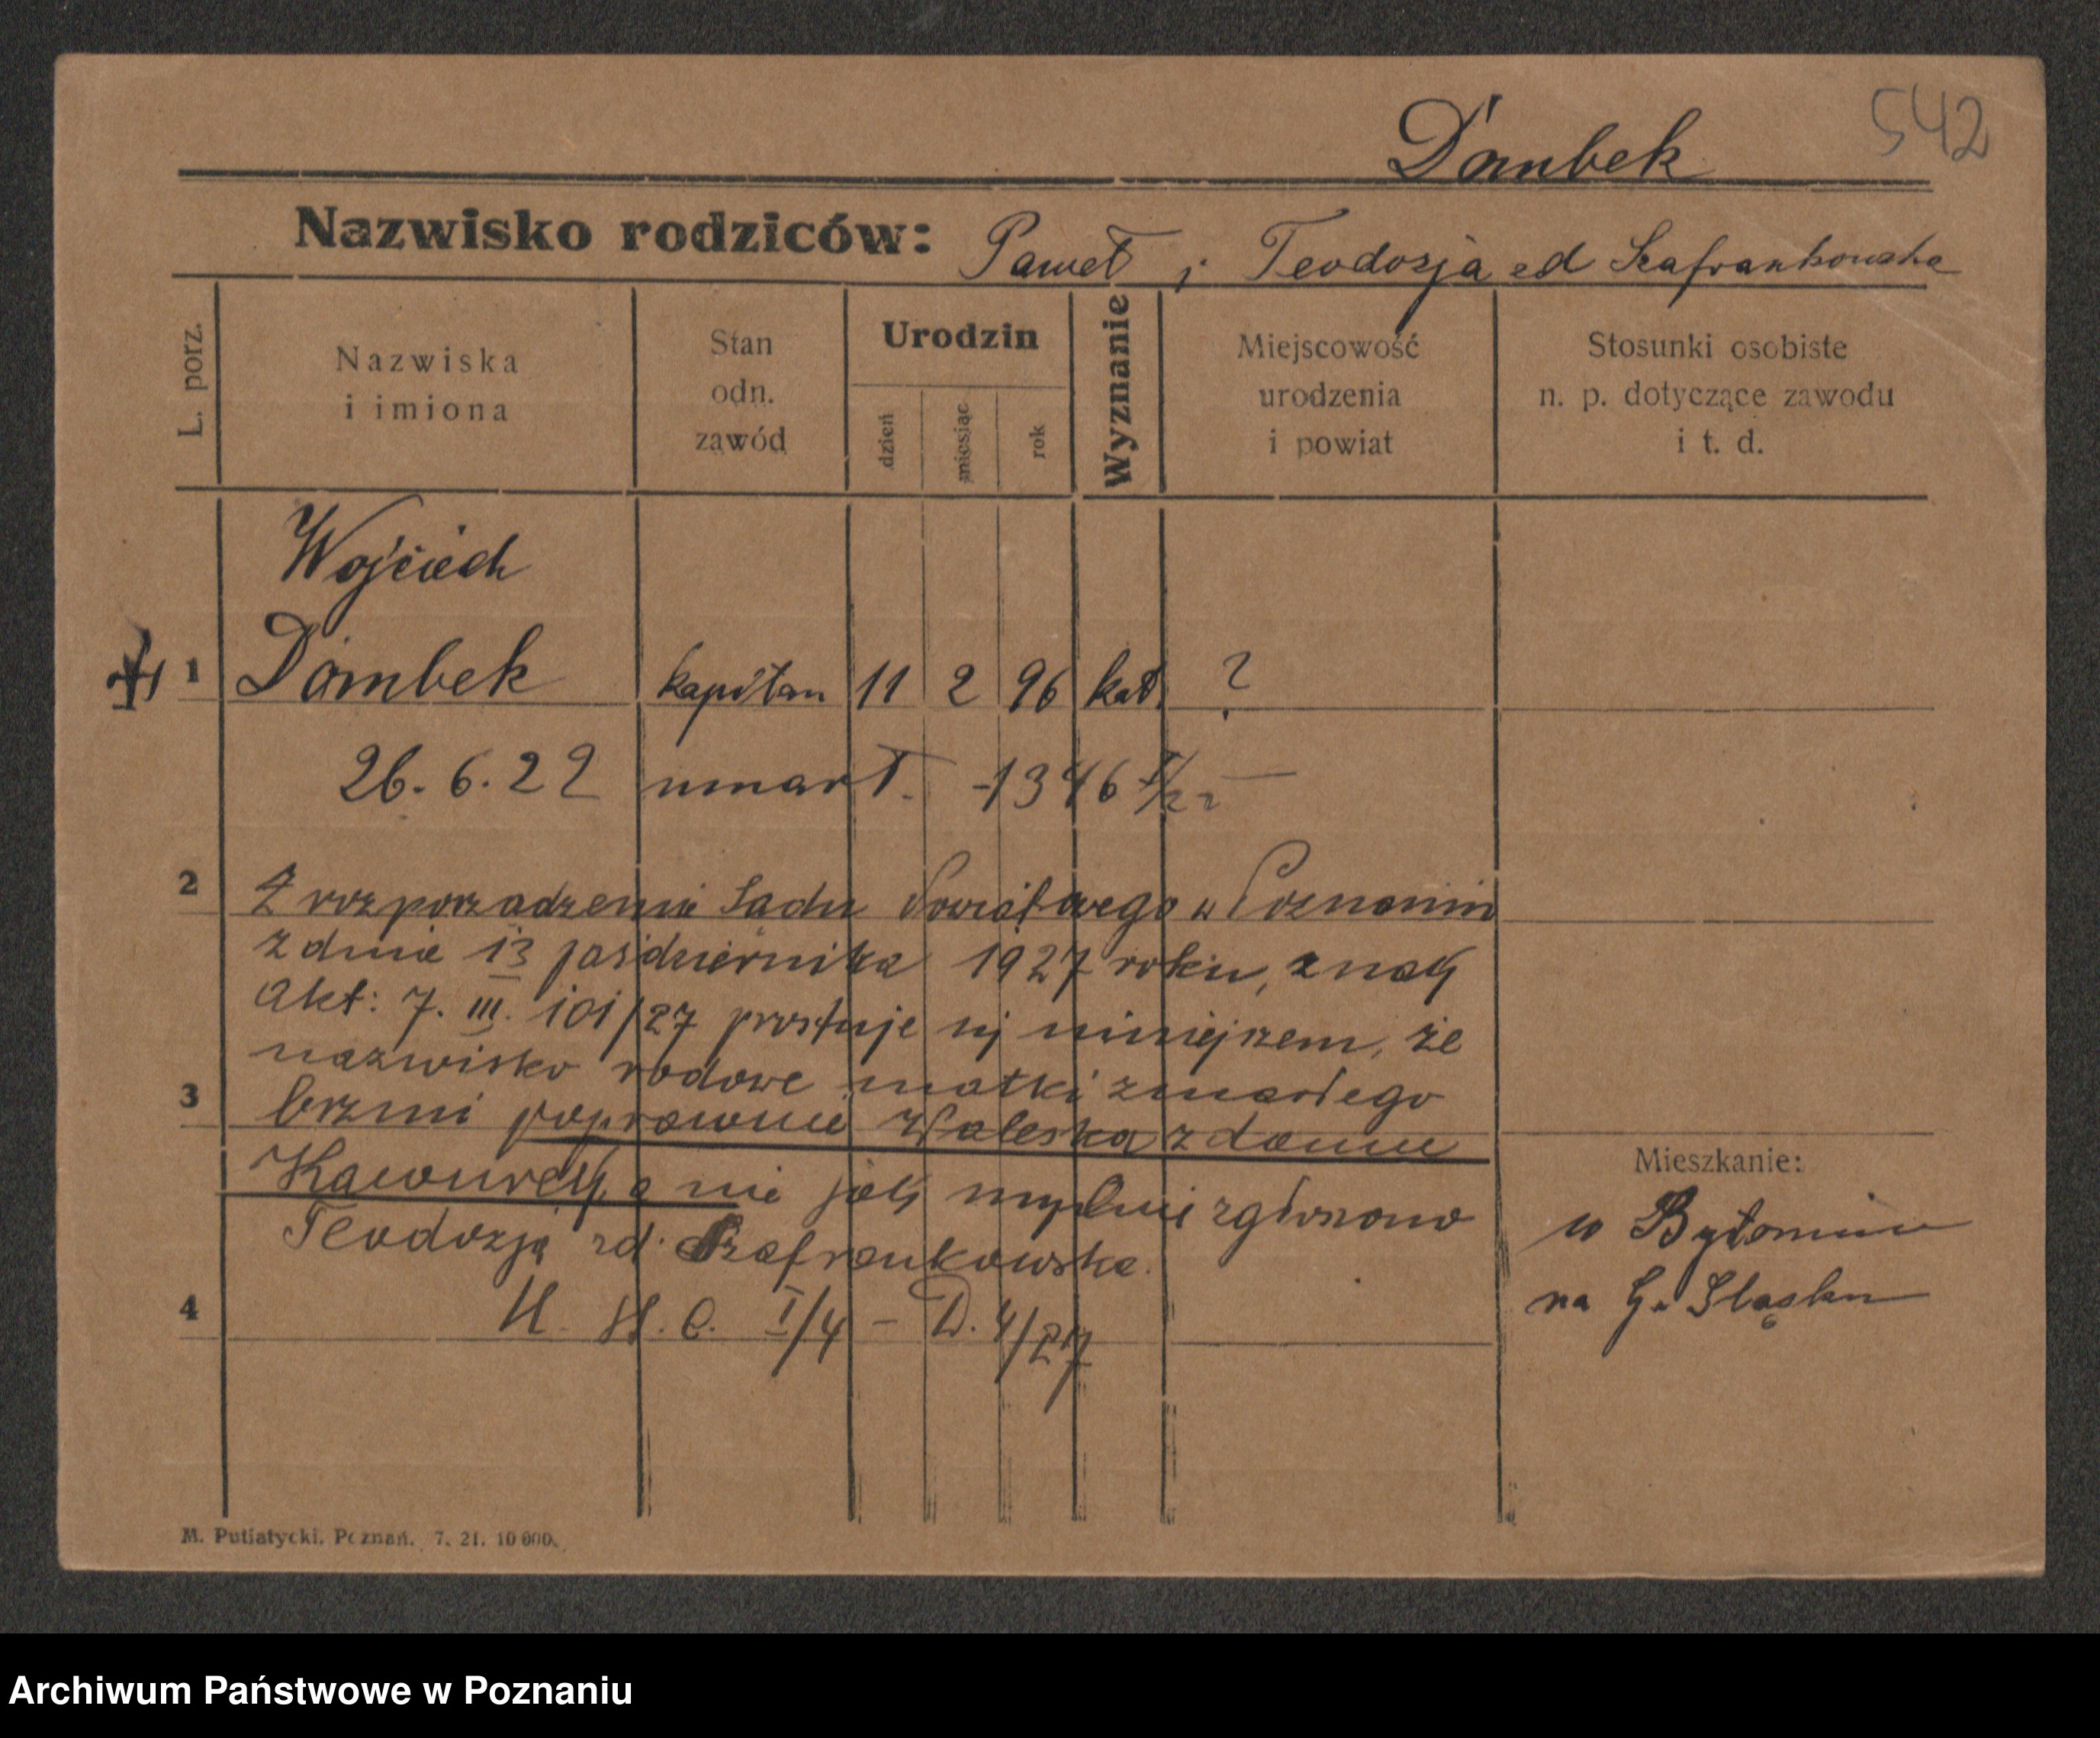 542
Dambek
Nazwisko rodziców: Paweł i Teodozja zd Szafrankowska
L. porz.
Nazwiska
i imiona
Stan
odn.
zawód
Urodzin
dzień
miesiąc
rok
Wyznanie
Miejscowość
urodzenia
i powiat
Stosunki osobiste
n. p. dotyczące zawodu
i t. d.
Wojciech
1 Dambek kapitan 11 2 96 kat. ?
26. 6. 22 umarł. - 1346
2 Z rozporządzenia Sądu Powiatowego w Poznaniu
z dnia 13 października 1927 roku, znak
Akt: 7. III. 101/27 prostuje się niniejszem, że
nazwisko rodowe matki zmarłego
3 brzmi poprawnie Waleska z domu
a nie jak mylnie zgłoszono
Teodozja zd. Szafrankowska.
4 U. S. C. I/4 - D. 4/27
Mieszkanie:
w Bytomiu
na G. Śląsku
M. Putiatycki, Poznań. 7. 21. 10 000.
Archiwum Państwowe w Poznaniu